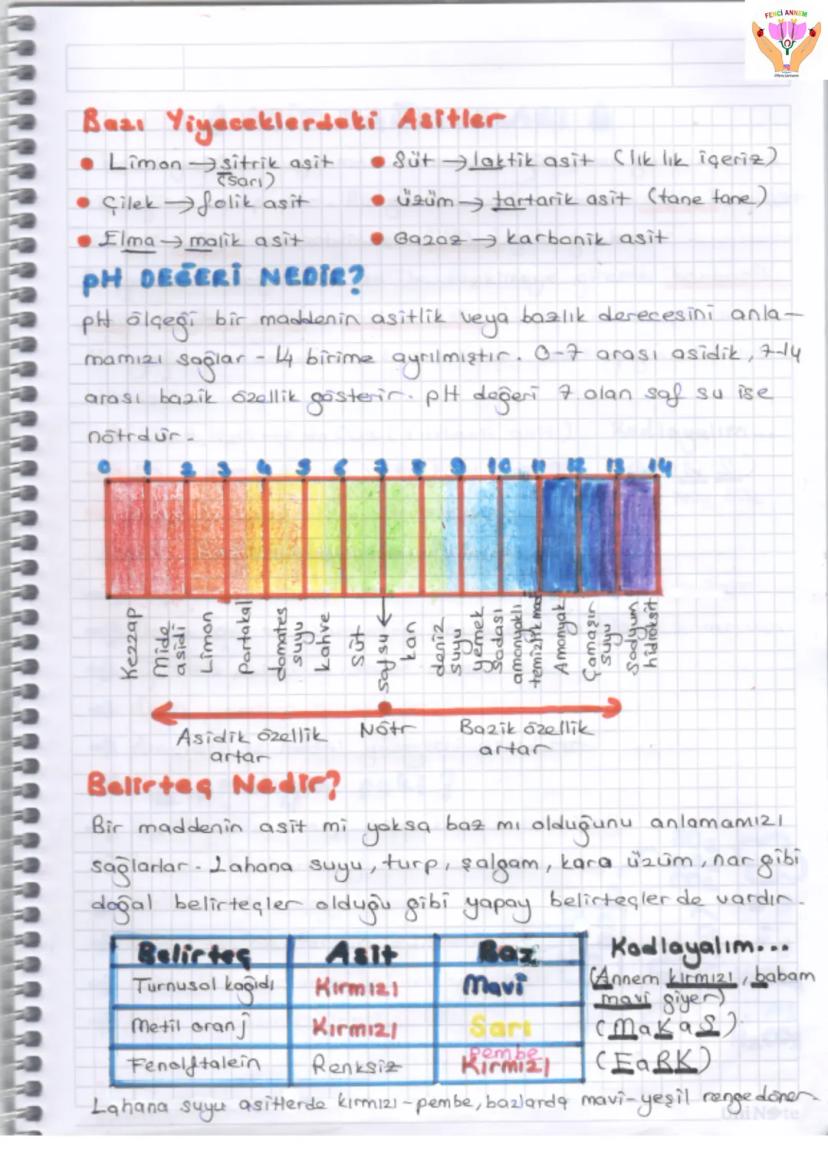 FENCİ ANNEM
Bazı Yiyeceklerdeki Asitler
• Limon → sitrik asit
(sarı)
• Süt → laktik asit (lık lık içeriz)
• Çilek → folik asit
• Üzüm → tartarik asit (tane tane)
• Elma → malik asit
• Gazoz → karbonik asit
pH DEĞERİ NEDİR?
pH ölçeği bir maddenin asitlik veya bazlık derecesini anla-
mamızı sağlar - 14 birime ayrılmıştır. 0-7 arası asidik, 7-14
arası bazik özellik gösterir. pH değeri 7 olan saf su ise
nötrdür.
0 1 2 3 4 5 6 7 8 9 10 11 12 13 14
Kezzap
Mide asidi
Limon
Portakal
domates suyu
kahve
Süt
Saf su
kan
deniz suyu
yemek sodası
amonyaklı temizlik mad
Amonyak
Çamaşır suyu
Sodyum hidroksit
Asidik özellik
artar
Nötr
Bazik özellik
artar
Belirteç Nedir?
Bir maddenin asit mi yoksa baz mı olduğunu anlamamızı
sağlarlar. Lahana suyu, turp, şalgam, kara üzüm, nar gibi
doğal belirteçler olduğu gibi yapay belirteçler de vardır.
Belirteç Asit Baz Kodlayalım...
Turnusol kağıdı Kırmızı Mavi (Annem kırmızı, babam
mavi giyer)
Metil oranj Kırmızı Sarı (MaKaS)
Fenolftalein Renksiz pembe Kırmızı (FaBK)
Lahana suyu asitlerde kırmızı-pembe, bazlarda mavi-yeşil renge döner.
UniNote